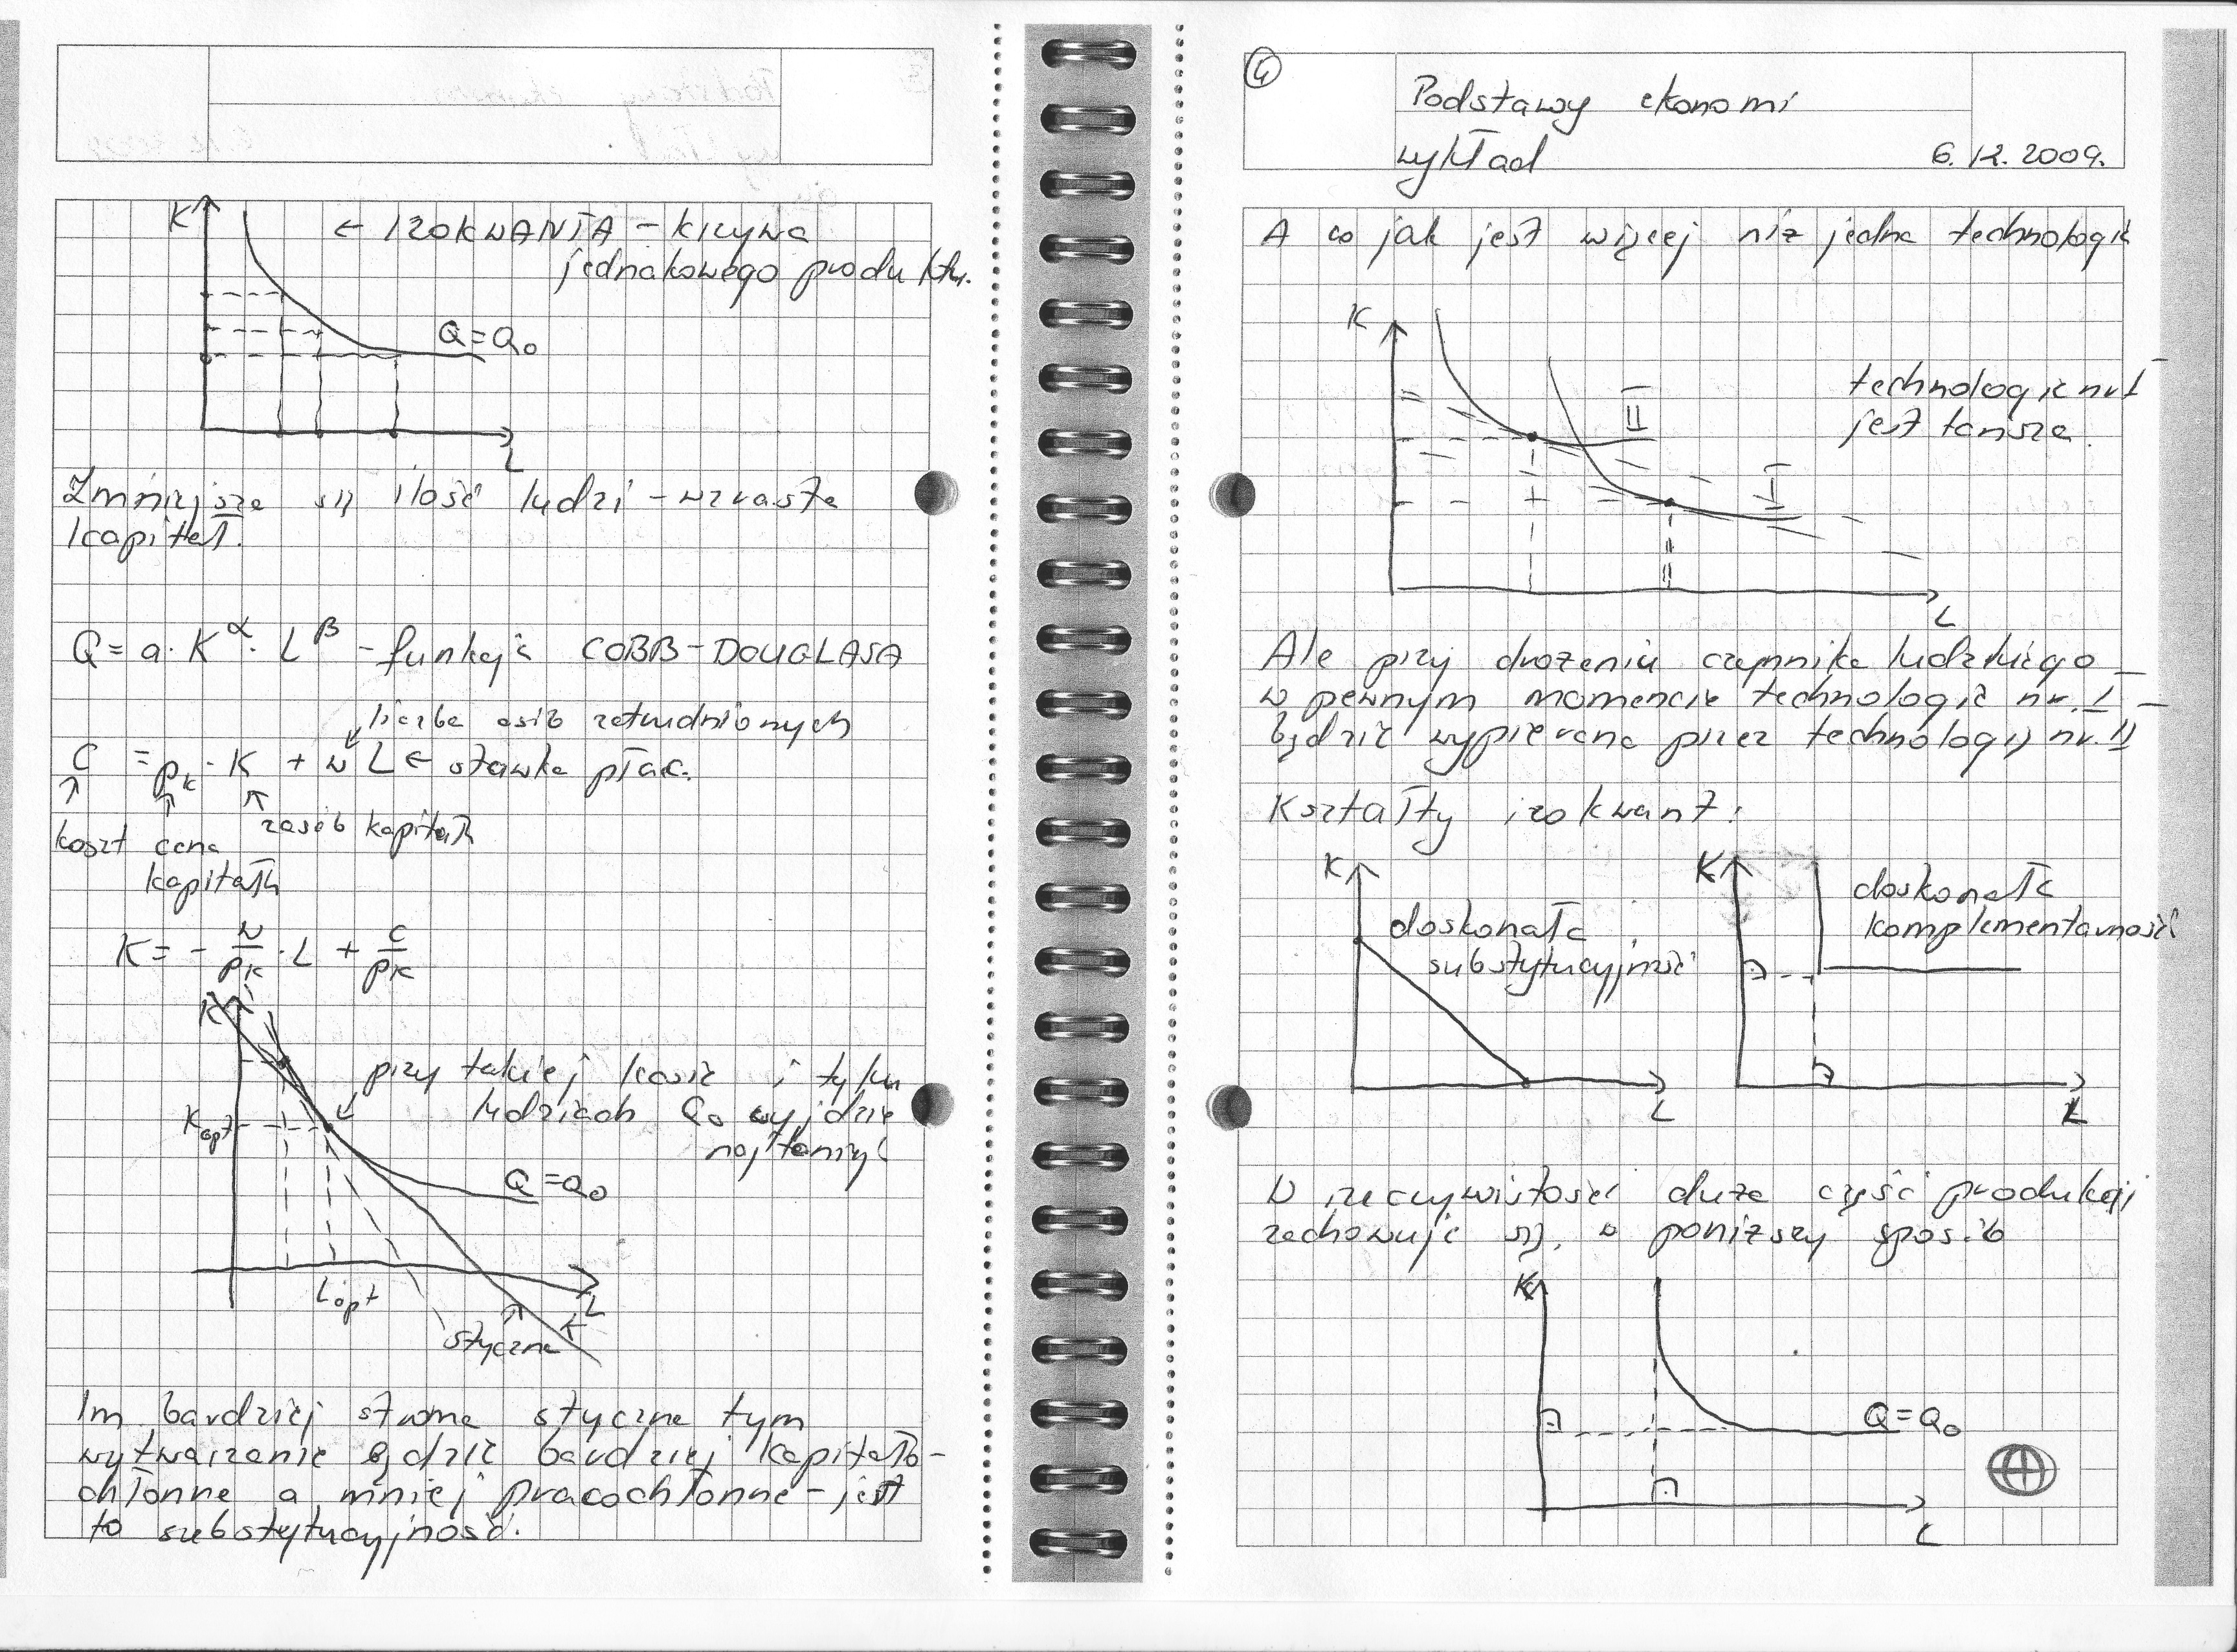 K
← IZOKWANTA - krzywa
jednakowego produktu.
Q=Q₀
L
Zmniejsza się ilość ludzi - wzrasta
kapitał.
Q = a · K^α · L^β - funkcja COBB-DOUGLASA
liczba osób zatrudnionych
C = pK · K + w L ← stawka płac.
zasób kapitału
koszt cena
kapitału
K = - w/pK · L + C/pK
K
przy takiej kasie i tylu
ludziach Q₀ wyjdzie
najtaniej
Kopt
Q=Q₀
Lopt
L
styczna
K
Im bardziej stroma styczna tym
wytwarzanie będzie bardziej kapitało-
chłonne a mniej pracochłonne - jest
to substytucyjność.
4
Podstawy ekonomi
wykład
6.12.2009.
A co jak jest więcej niż jedna technologia
K
technologia nr I
jest tańsza.
II
I
L
Ale przy drożeniu czynnika ludzkiego
w pewnym momencie technologia nr. I
będzie wypierana przez technologię nr. II
Kształty izokwant:
K
doskonała
substytucyjność
L
K
doskonała
komplementarność
L
W rzeczywistości duża część produkcji
zachowuje się w poniższy sposób
K
Q=Q₀
L